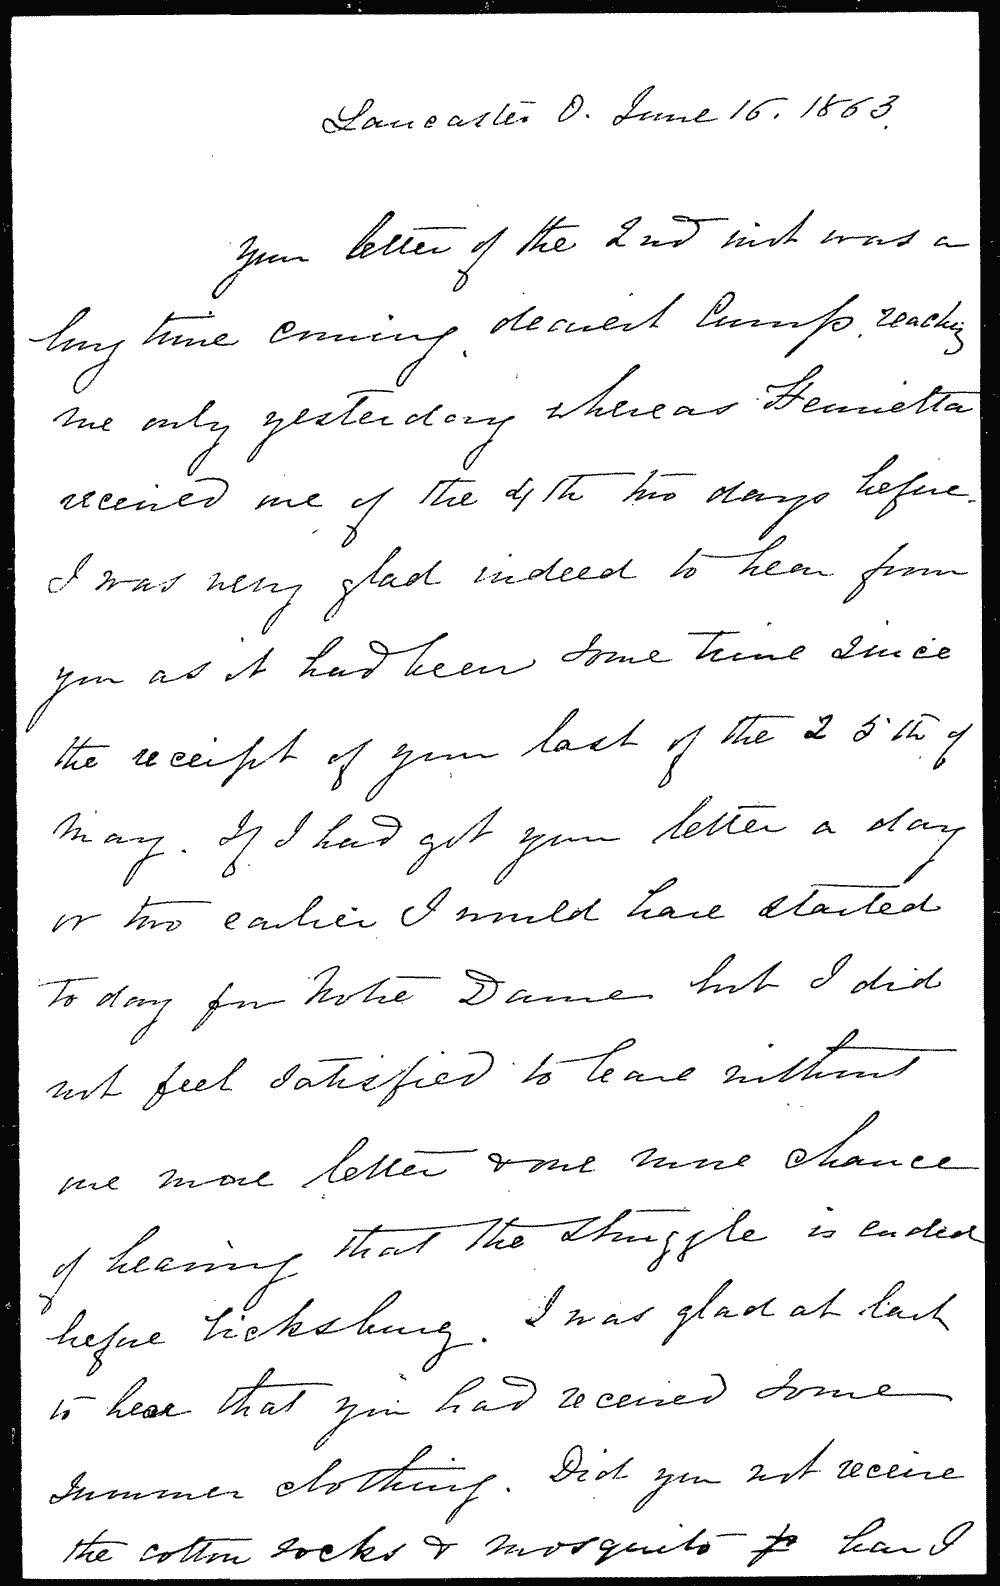 Lancaster O. June 16. 1863.
Your letter of the 2nd inst was a
long time coming, dearest Cump, reaching
me only yesterday whereas Henrietta
received one of the 4th two days before.
I was very glad indeed to hear from
you as it had been some time since
the receipt of your last of the 25th of
May. If I had got your letter a day
or two earlier I would have started
to day for Notre Dame but I did
not feel satisfied to leave without
one more letter & one more chance
of hearing that the struggle is ended
before Vicksburg. I was glad at last
to hear that you had received some
summer clothing. Did you not receive
the cotton socks & mosquito bar I